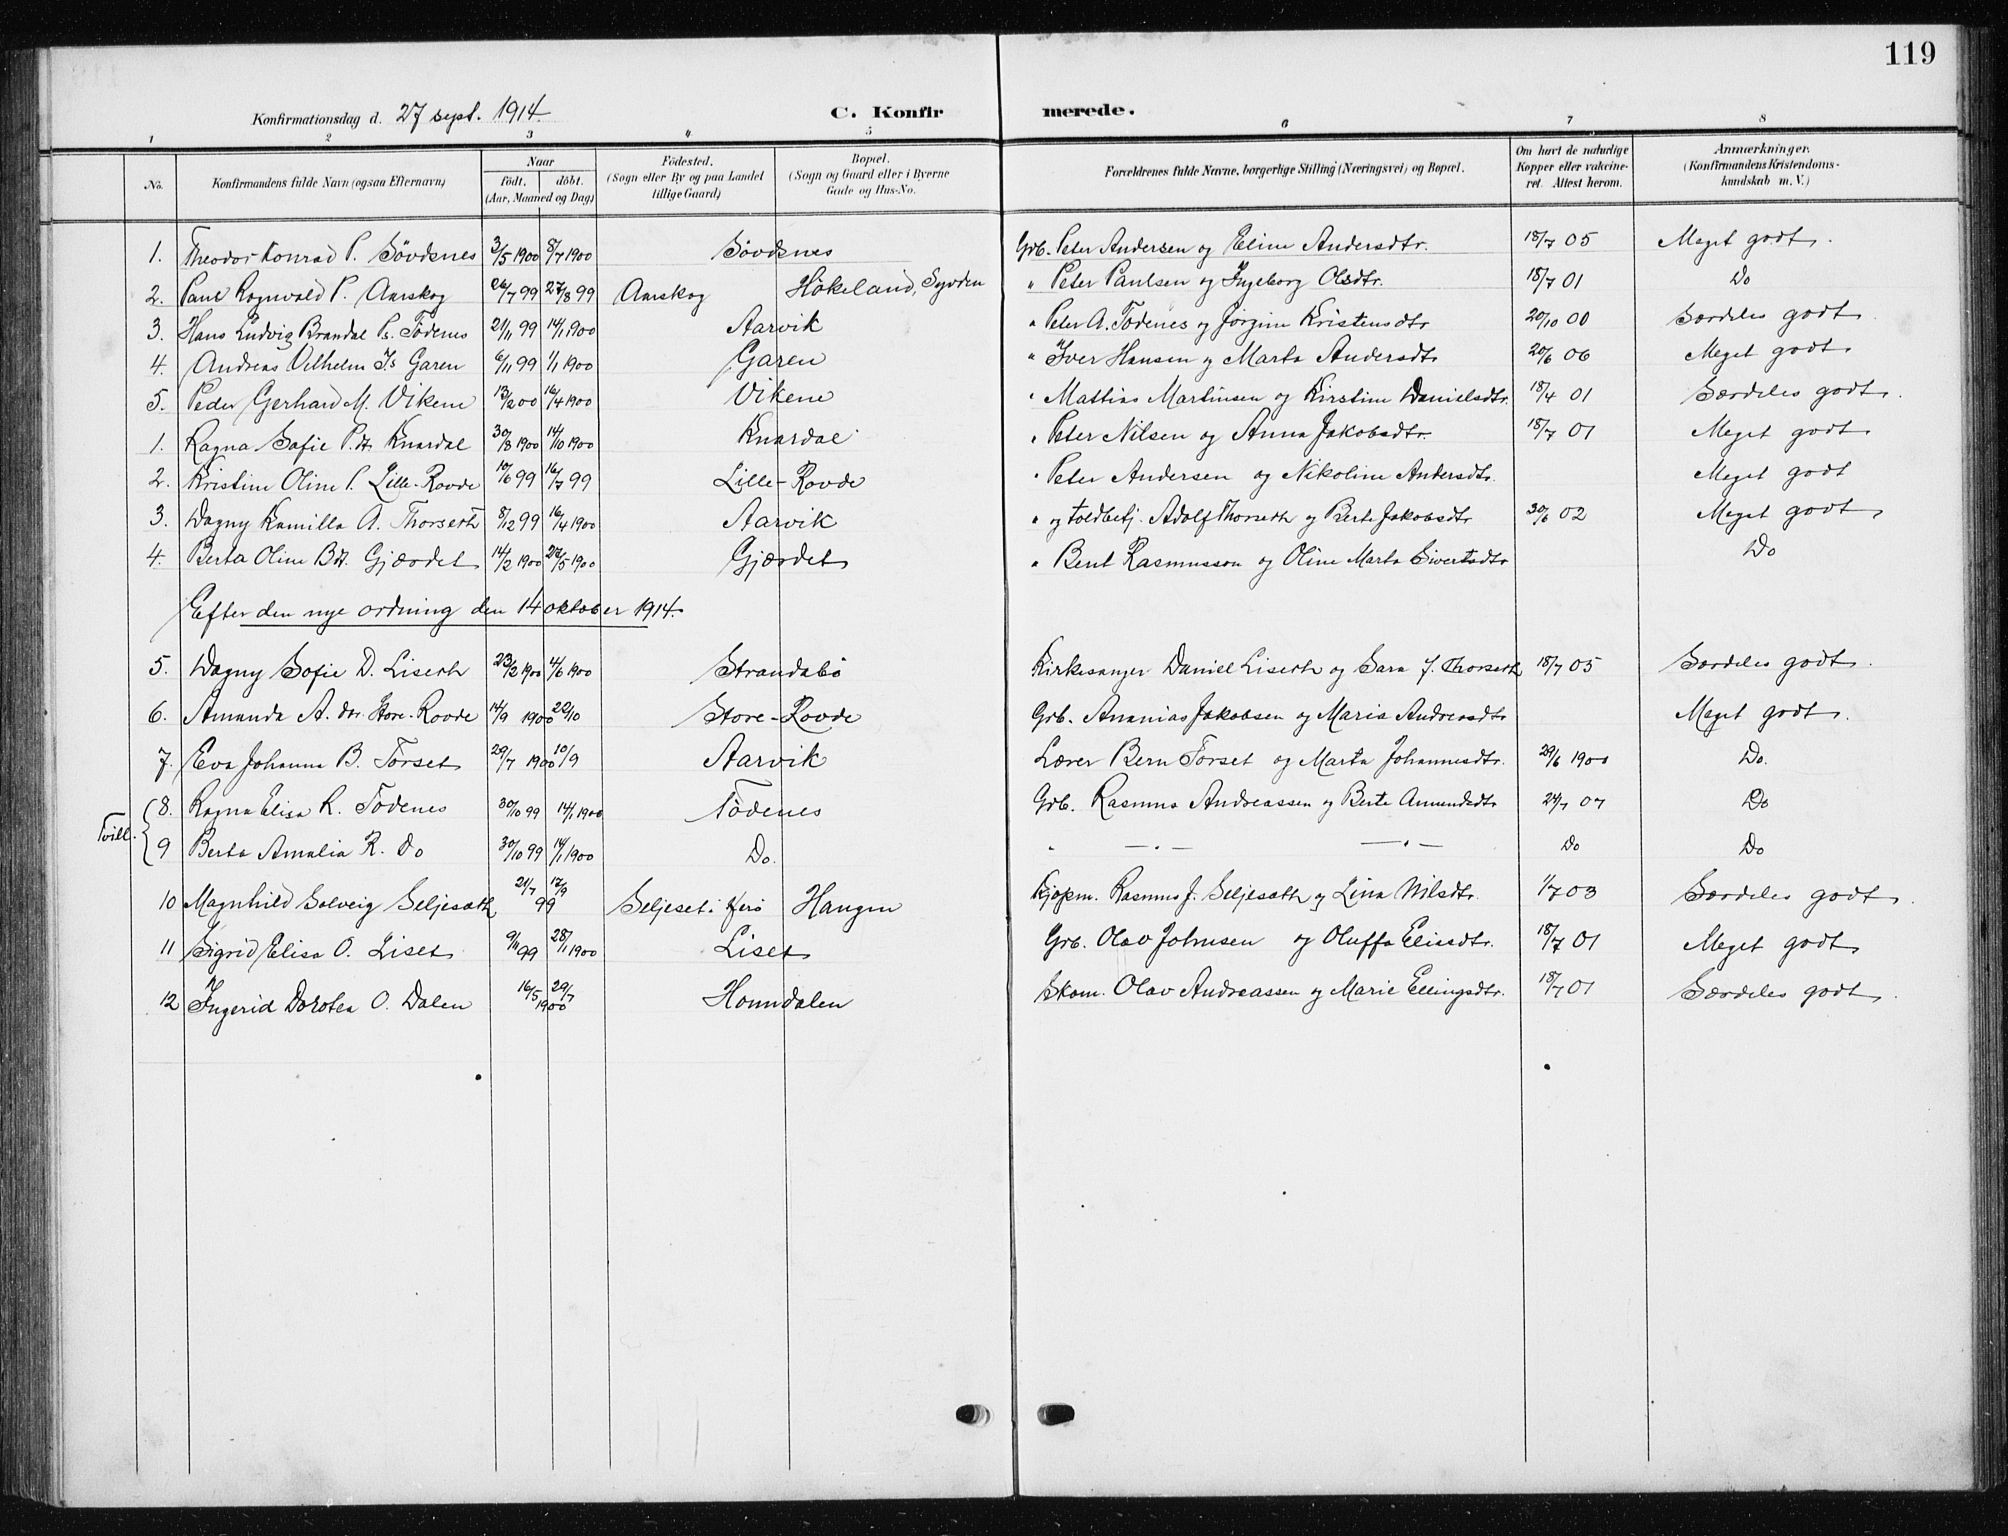 119
Konfirmationsdag d. 27 sept. 1914. C. Konfirmerede.
1 2 3 4 5 6 7 8
No. Konfirmandens fulde Navn (ogsaa Efternavn) Naar födt. döbt. (Aar, Maaned og Dag) Födested. (Sogn eller By og paa Landet tillige Gaard) Bopæl. (Sogn og Gaard eller i Byerne Gade og Hus-No. Forældrenes fulde Navne, borgerlige Stilling (Næringsvei) og Bopæl. Om havt de naturlige Kopper eller vakcineret. Attest herom. Anmærkninger. (Konfirmandens Kristendomskundskab m. V.)
1. Theodor Konrad P. Sövdsnes 3/5 1900 8/7 1900 Sövdsnes Grb. Peter Andersen og Eline Andersdtr. 18/7 05 Meget godt.
2. Paul Ragnvald P. Aarskog 26/7 99 27/8 99 Aarskog Hokeland, Syvden " Peter Paulsen og Ingeborg Olsdtr. 18/7 01 Do
3. Hans Ludvig Brandal Ps. Todenes 21/11 99 14/1 1900 Aarvik " Peter A. Todenes og Jörgine Kristensdtr 20/10 00 Særdeles godt
4. Andreas Vilhelm Is Garen 6/11 99 1/1 1900 Garen " Iver Hansen og Marta Andersdtr 20/6 06 Meget godt
5. Peder Gerhard M. Vikene 13/2 00 16/4 1900 Vikene " Mattias Martinsen og Kirstine Danielsdtr. 18/4 01 Særdeles godt.
1. Ragna Sofie P.dt. Knardal 30/8 1900 14/10 1900 Knardal " Peter Nilsen og Anna Jakobsdtr. 18/7 01 Meget godt
2. Kristine Oline P. Lille-Rovde 10/6 99 16/7 99 Lille-Rovde " Peter Andersen og Nikoline Andersdtr. Meget godt
3. Dagny Kamilla A. Thorseth 8/12 99 16/4 1900 Aarvik " og toldbetj. Adolf Thorseth og Berte Jakobsdtr 30/6 02 Meget godt
4. Berta Oline Bdt. Gjærdet 14/2 1900 27/5 1900 Gjærdet " Bent Rasmusson og Oline Marta Sivertsdtr Do
Efter den nye ordning den 14 oktober 1914.
5. Dagny Sofie D. Liseth 23/2 1900 4/6 1900 Strandabö Kirkesanger Daniel Liseth og Sara J. Thorseth 18/7 05 Særdeles godt.
6. Amanda A. dtr. Store-Rovde 14/9 1900 22/10 Store-Rovde Grb. Ananias Jakobsen og Maria Andreasdtr Meget godt.
7. Eva Johanna B. Torset 29/7 1900 10/9 Aarvik Lærer Bern Torset og Marta Johannesdtr. 29/6 1900 Do.
Tvill. 8. Ragna Elisa R. Todenes 30/10 99 14/1 1900 Tödenes Grb. Rasmus Andreassen og Berte Amundsdtr 24/7 07 Do
9 Berta Amalia R. Do 30/10 99 14/1 1900 Do. " — " — — " — Do Do
10 Magnhild Solveig Seljesæth 21/7 17/9 99 Seljeset i Herö Haugen Kjøpm. Rasmus J. Seljesæth og Lina Nilsdtr. 1/7 03 Særdeles godt.
11 Sigrid Elisa O. Liset 9/11 99 28/1 1900 Liset Grb. Olav Johnsen og Oluffa Elisdtr. 18/7 01 Meget godt
12 Ingerid Dorotea O. Dalen 16/5 1900 29/7 Homdalen Skom. Olav Andreassen og Marie Ellingsdtr. 18/7 01 Særdeles godt.